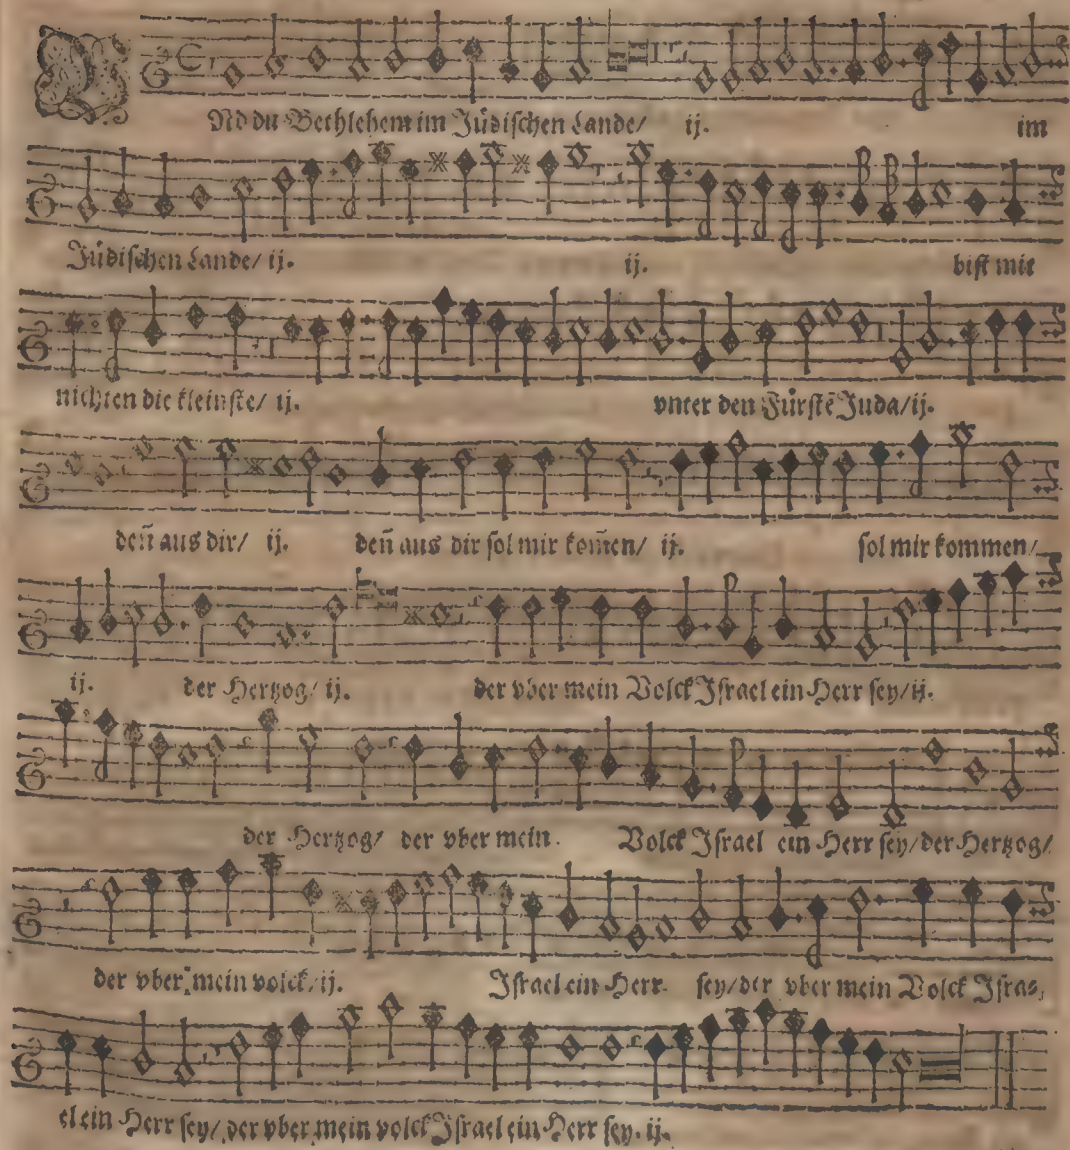 VNd du Bethlehem im Jüdischen Lande/ ij. im
Jüdischen Lande/ ij. ij. bist mit
nichten die kleinste/ ij. vnter den Fürstē Juda/ ij.
den̄ aus dir/ ij. den̄ aus dir sol mir kom̄en/ ij. sol mir kommen/
ij. der Hertzog/ ij. der vber mein Volck Israel ein Herr sey/ ij.
der Hertzog/ der vber mein Volck Israel ein Herr sey/ der Hertzog/
der vber mein volck/ ij. Israel ein Herr sey/ der vber mein Volck Isra⸗
el ein Herr sey/ der vber mein volck Israel ein Herr sey. ij.